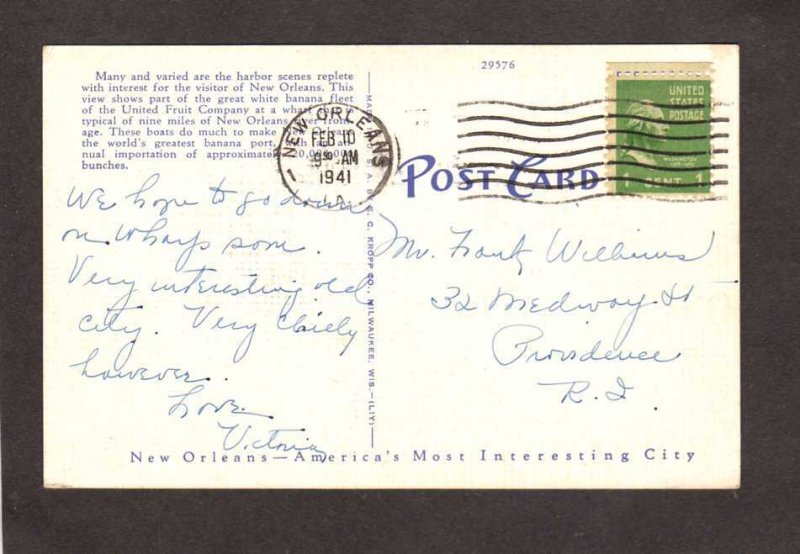 29576
Many and varied are the harbor scenes replete
with interest for the visitor of New Orleans. This
view shows part of the great white banana fleet
of the United Fruit Company at a wharf
typical of nine miles of New Orleans river front-
age. These boats do much to make New Orleans
the world's greatest banana port, with an an-
nual importation of approximately 20,000,000
bunches.
NEW ORLEANS
FEB 10
AM
1941
LA.
1
UNITED
STATES
POSTAGE
WASHINGTON
1 CENT 1
POST CARD
E. C. KROPP CO., MILWAUKEE, WIS.—(LIY)
We hope to go down
on wharfs soon.
Very interesting old
city. Very chilly
however.
Love
Victoria
Mr. Frank Williams
32 Medway St
Providence
R. I.
New Orleans—America's Most Interesting City